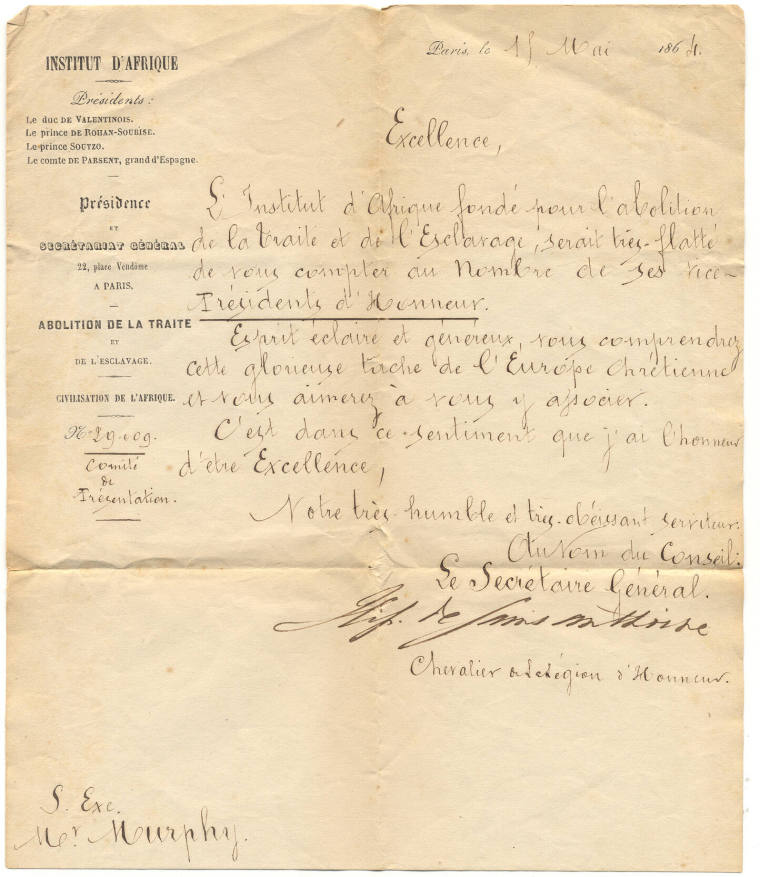 INSTITUT D'AFRIQUE
Présidents:
Le duc DE VALENTINOIS.
Le prince DE ROHAN-SOUBISE.
Le prince SOUTZO.
Le comte DE PARSENT, grand d'Espagne.
Présidence
ET
SECRÉTARIAT GÉNÉRAL
22, place Vendôme
A PARIS.
ABOLITION DE LA TRAITE
ET
DE L'ESCLAVAGE.
CIVILISATION DE L'AFRIQUE.
No 29.009.
Comité
de
Présentation.
Paris, le 15 Mai 1864.
Excellence,
L'Institut d'Afrique fondé pour l'abolition
de la traite et de l'Esclavage, serait très-flatté
de vous compter au Nombre de ses vice-
Présidents d'Honneur.
Esprit éclairé et généreux, vous comprendrez
cette glorieuse tâche de l'Europe Chrétienne
et vous aimerez à vous y associer.
C'est dans ce sentiment que j'ai l'honneur
d'être Excellence,
Notre très-humble et très-obéissant serviteur.
Au Nom du Conseil:
Le Secrétaire Général.
Hip. de Saint Anthoine
Chevalier de la Légion d'Honneur.
S. Exc.
Mr Murphy.